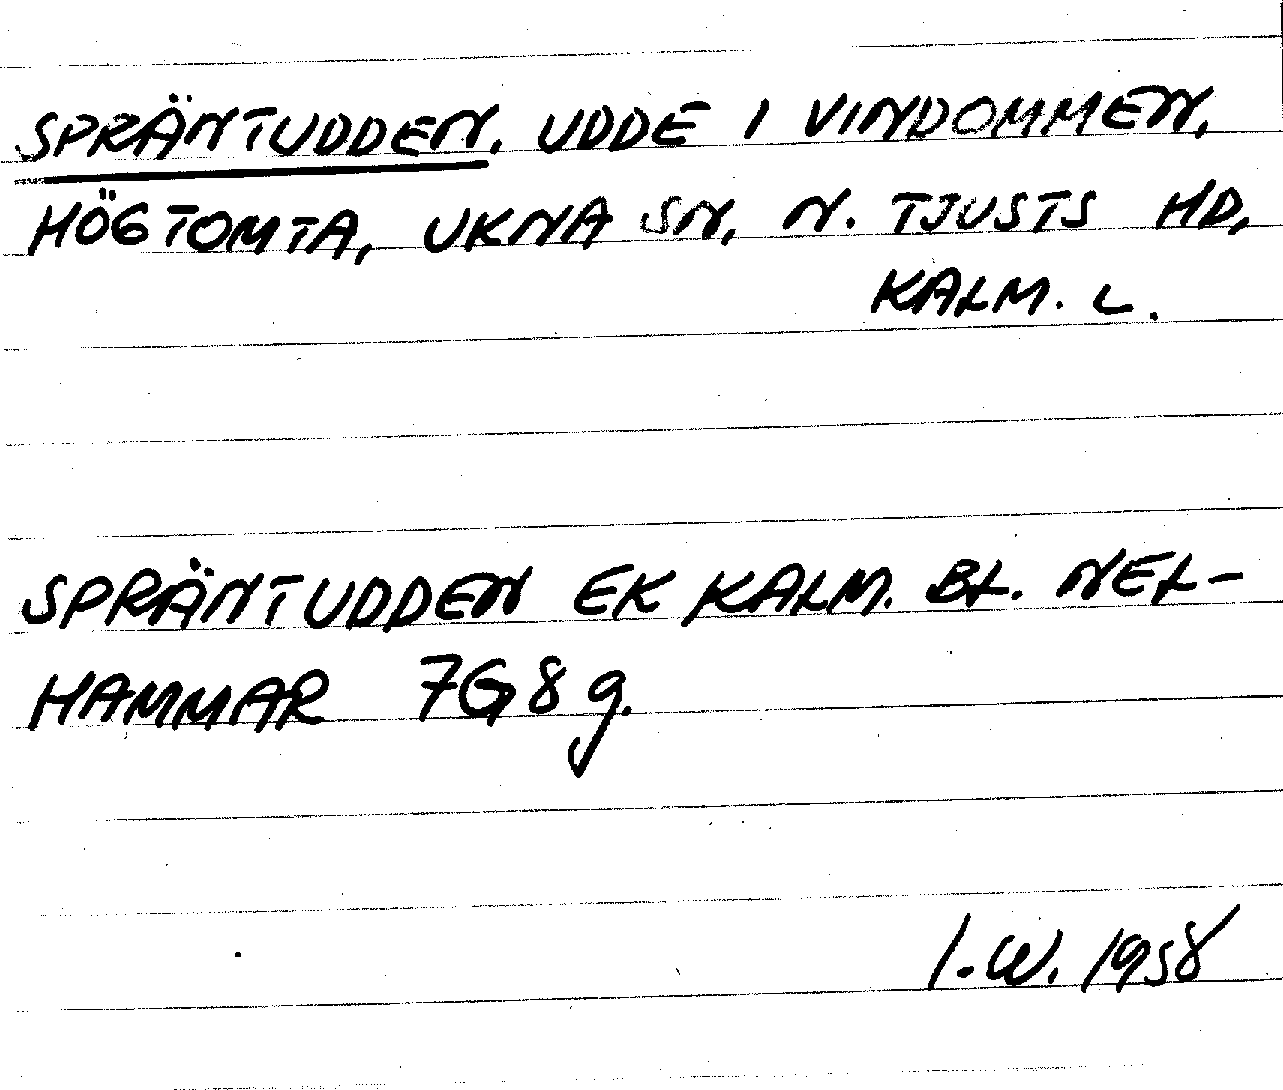 SPRÄNTUDDEN. UDDE I VINDOMMEN,
HÖGTOMTA, UKNA SN, N. TJUSTS HD,
KALM. L.
SPRÄNTUDDEN EK KALM. BL. NEL-
HAMMAR 7G8g.
I.W. 1958